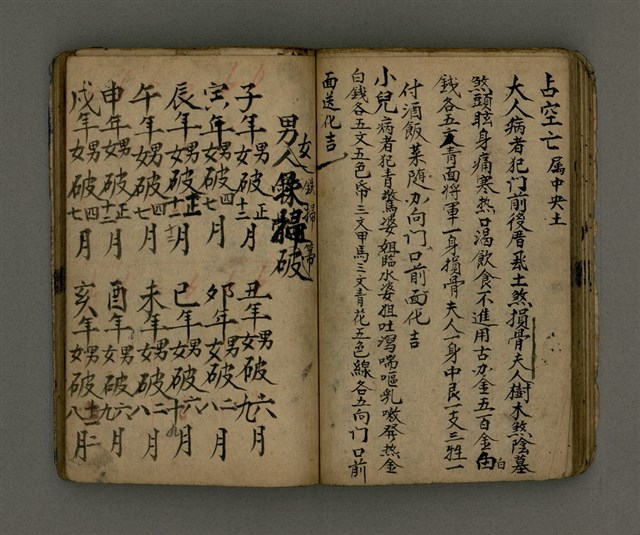 占空亡 属中央土
大人病者犯门前後厝飛土煞損骨夫人樹木煞陰墓
煞頭眩身痛寒热口渴飲食不進用古办金五百金白
錢各五文青面將軍一身損骨夫人一身中艮一支三牲一
付酒飯菜隨办向门口前面化吉
小兒病者犯青驚婆姐臨水婆姐吐瀉喘嘔乳嗽發热金
白錢各五文五色帋三文甲馬三文青花五色線各五向门口前
面送化吉
男人 破
女 掃帚
子年男女破正十二月
寅年男女破四七月
辰年男女破正十二月
午年男女破四七月
申年男女破正十二月
戍年男女破四七月
丑年男女破六九月
卯年男女破二八月
巳年男女破六十月
未年男女破二八月
酉年男女破六九月
亥年男女破二八月